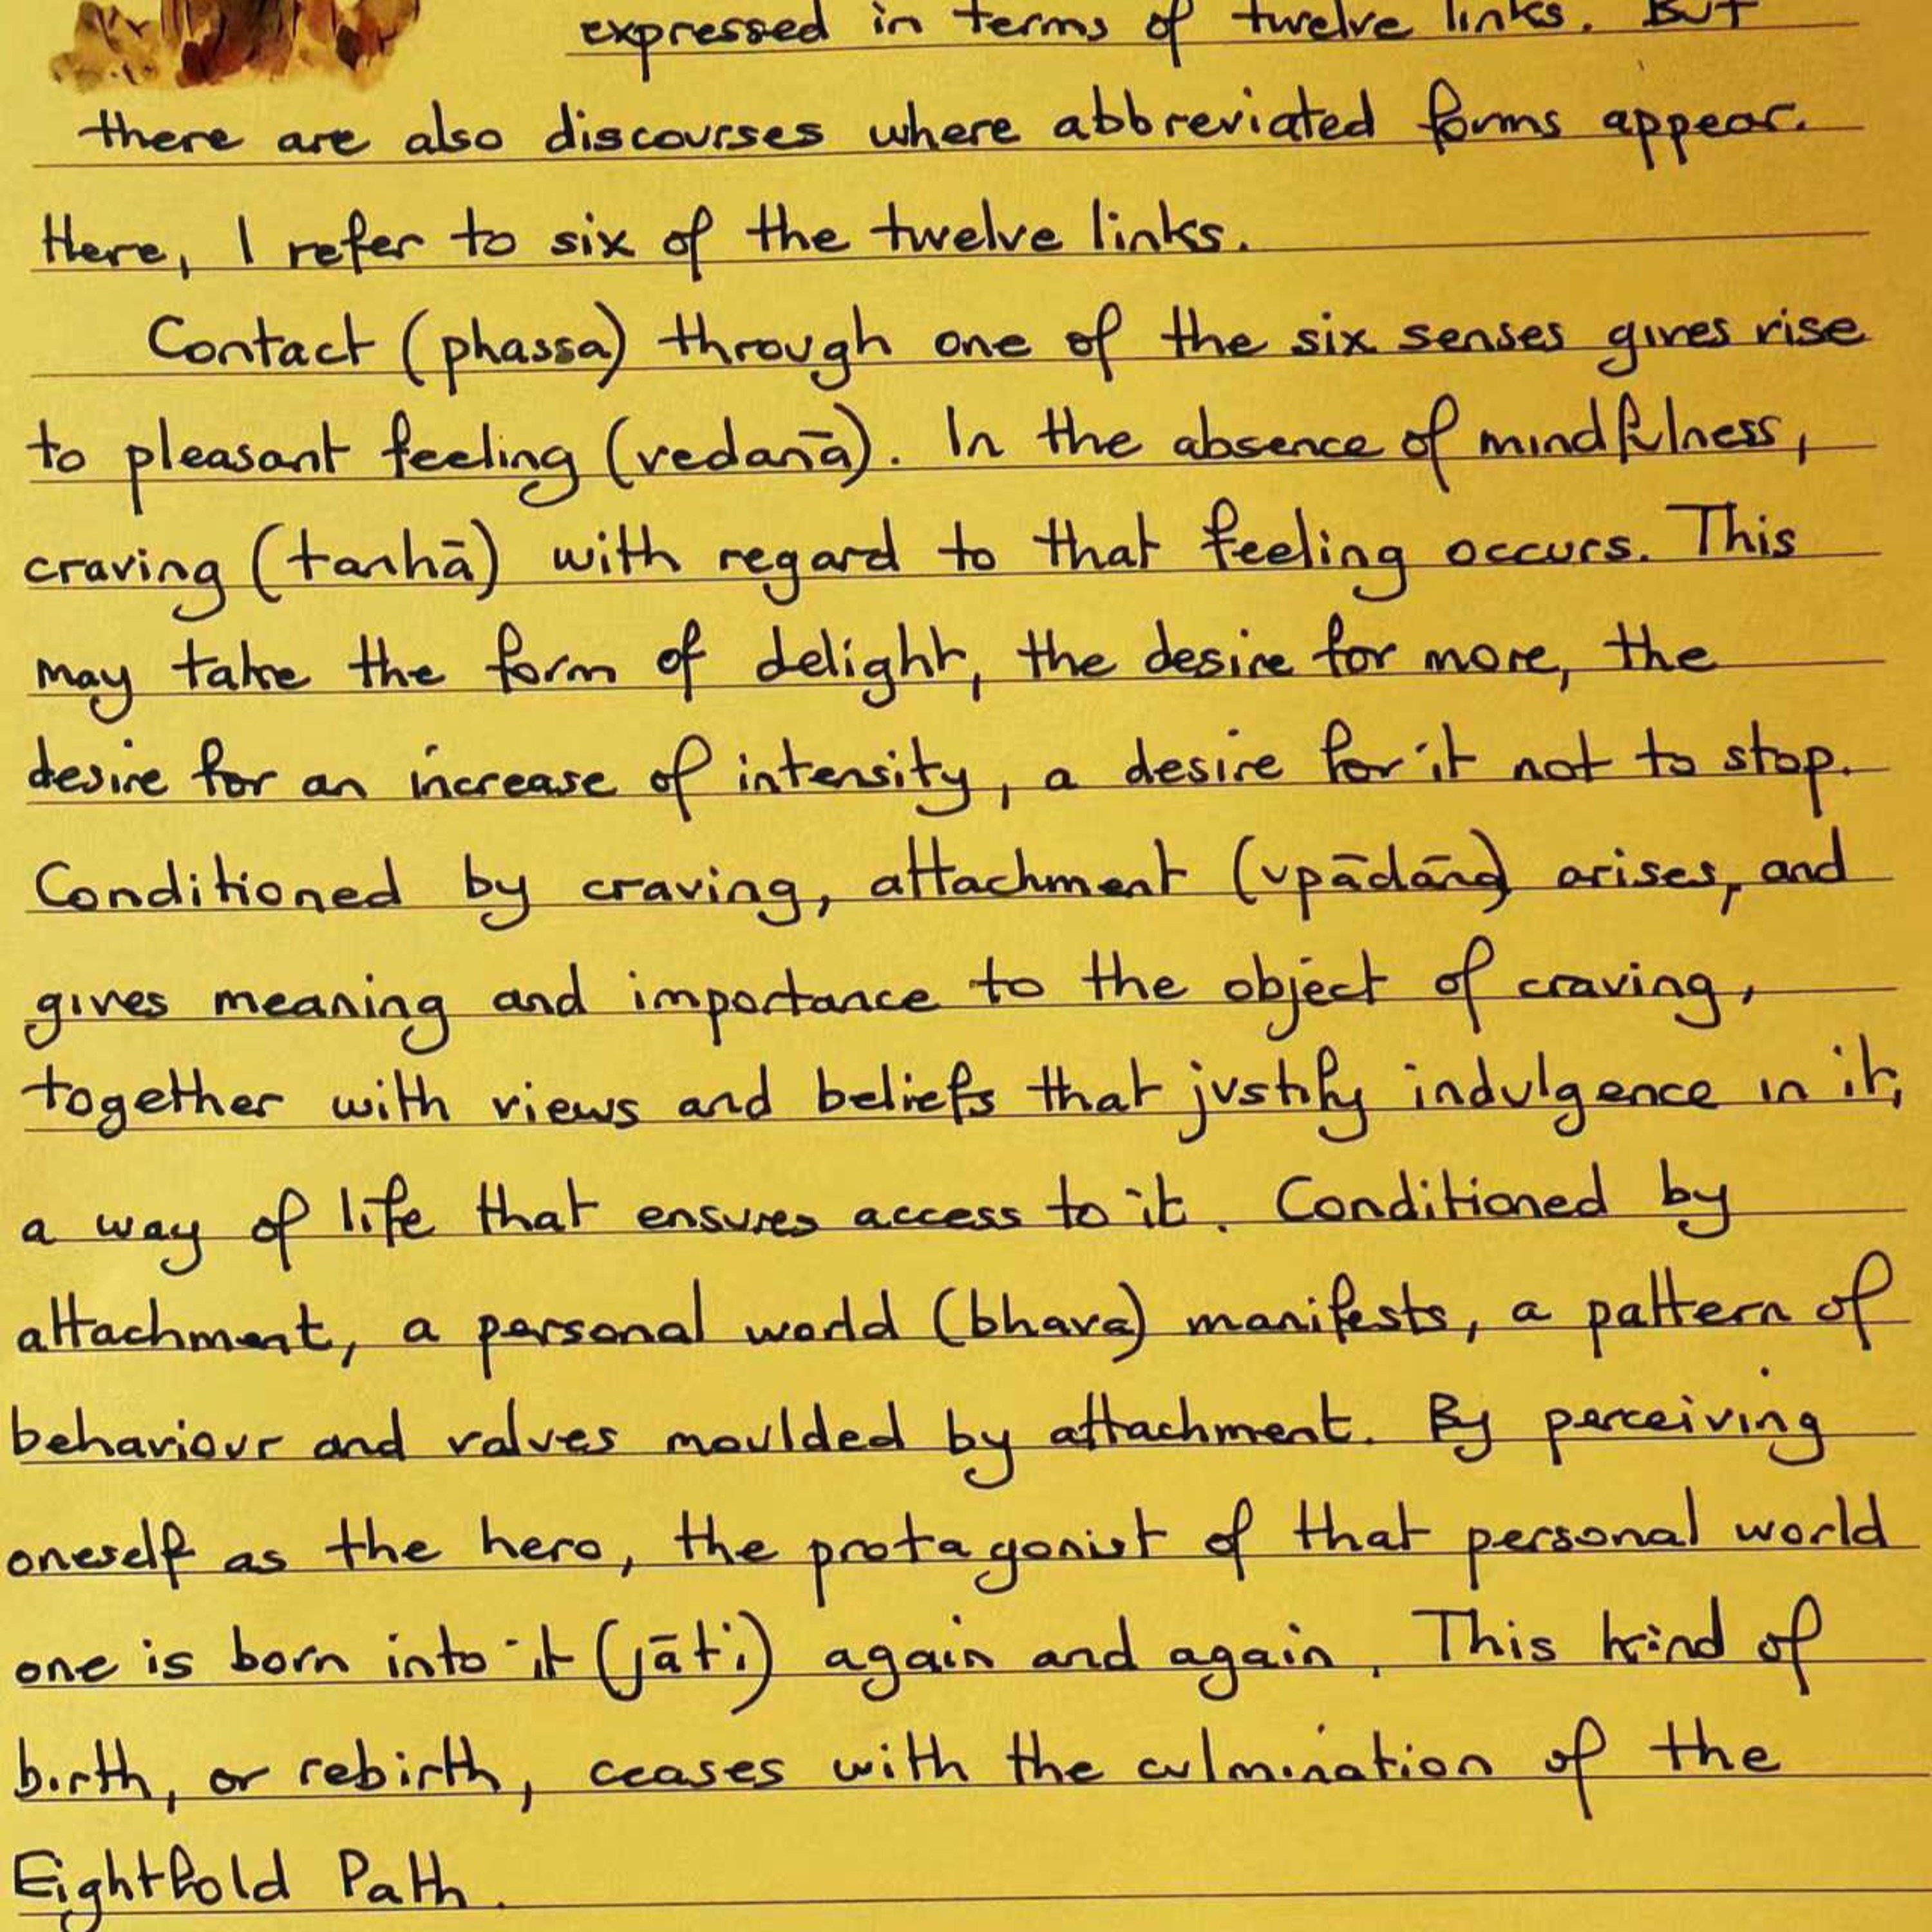 expressed in terms of twelve links. But
there are also discourses where abbreviated forms appear.
Here, I refer to six of the twelve links.
Contact (phassa) through one of the six senses gives rise
to pleasant feeling (vedanā). In the absence of mindfulness,
craving (tanhā) with regard to that feeling occurs. This
may take the form of delight, the desire for more, the
desire for an increase of intensity, a desire for it not to stop.
Conditioned by craving, attachment (upādāna) arises, and
gives meaning and importance to the object of craving,
together with views and beliefs that justify indulgence in it,
a way of life that ensures access to it. Conditioned by
attachment, a personal world (bhava) manifests, a pattern of
behaviour and values moulded by attachment. By perceiving
oneself as the hero, the protagonist of that personal world
one is born into it (jāti) again and again. This kind of
birth, or rebirth, ceases with the culmination of the
Eightfold Path.